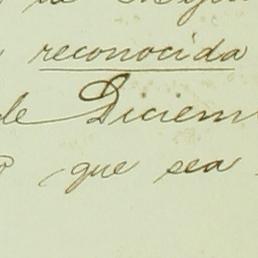 reconocida
de Diciem
que sea